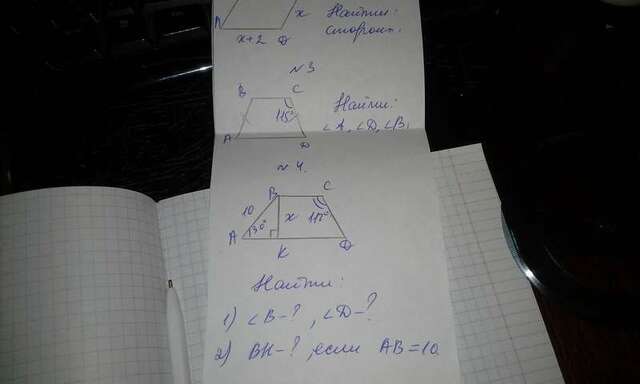 A
x
Найти:
x+2
D
сторон.
№3
B
C
Найти:
115°
A
D
∠A, ∠D, ∠B,
№4.
B
C
10
x
117°
A
30°
K
D
Найти:
1) ∠B-?, ∠D-?
2) BK-?, если AB=10